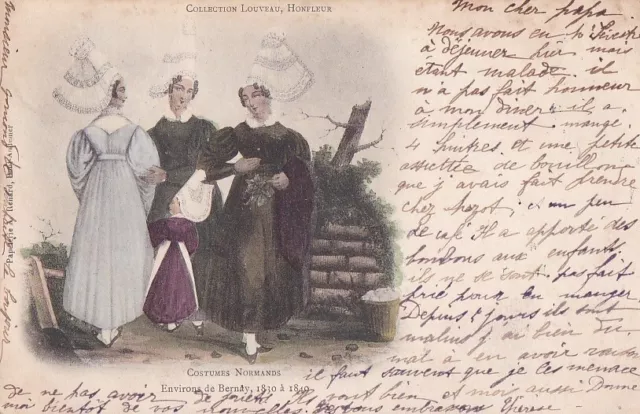 COLLECTION LOUVEAU, HONFLEUR
Mon cher papa
Nous avons eu Mr
à déjeuner hier mais
étant malade il
n a pas fait honneur
à mon diner il a
simplement mangé
4 huitres et une petite
assiettée de bouillon
que j avais fait prendre
chez et un peu
de café Il a apporté des
bonbons aux enfants
ils ne se sont pas fait
prié pour en manger
Depuis jours ils sont
malins j ai bien du
mal à en avoir
il faut souvent que je les menace
de ne pas avoir de joujets Ils vont bien et moi aussi Donne
moi bientôt de vos nouvelles embrassons
COSTUMES NORMANDS
Environs de Bernay, 1830 à 1840
Papeterie A. Renard,
Monsieur